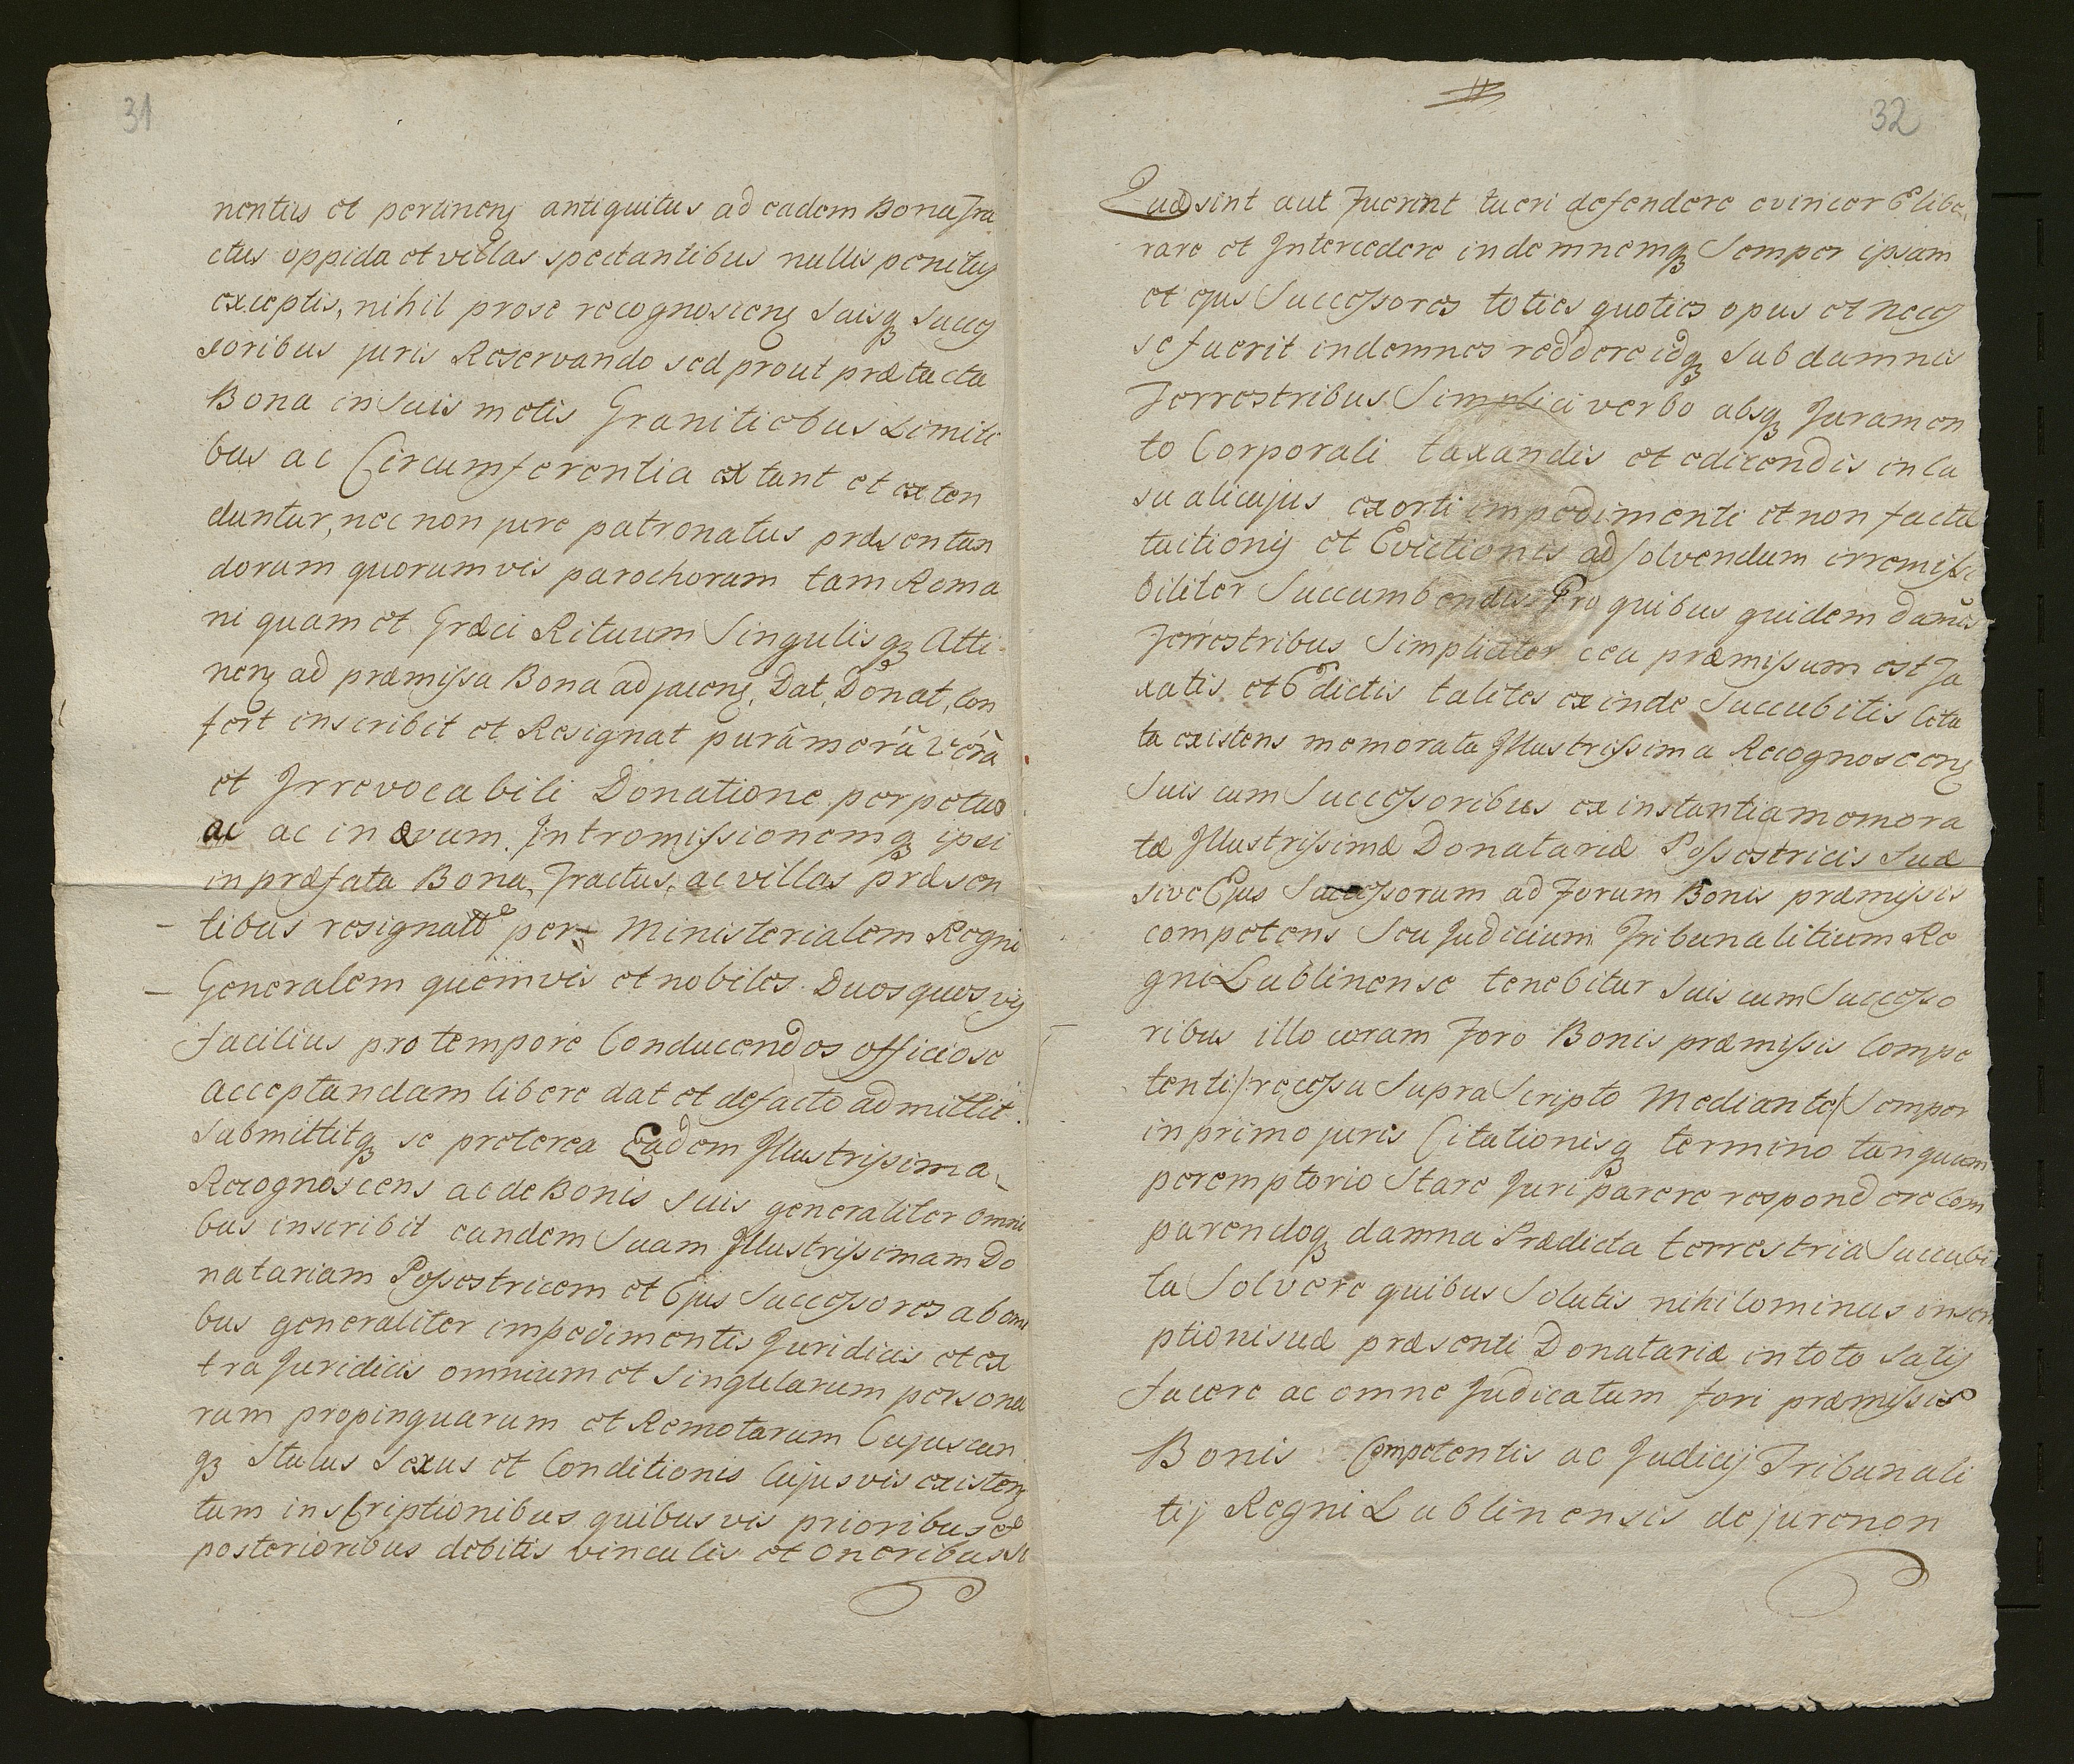 31
nentiis et pertinenꝫ antiquitus ad eadem Bona Tra
ctus oppida et villas spectantibus nullis penitus
exceptis, nihil prose recognoscenꝫ suisqꝫ succes
soribus juris Reservando sed prout prætacta
Bona in suis metis Granitiebus Limiti
bus ac Circumferentia extant et exten
duntur, nec non jure patronatus præsentan
dorum quorumvis parochorum tam Roma
ni quam et Græci Rituum Singulisqꝫ Atti-
nenꝫ ad præmissa Bona adjacenꝫ, Dat, Donat, Con
fert inscribit et Resignat purâ merâ verâ
et Irrevocabili Donatione perpetuo
ac ac in ævum. Intromissionemqꝫ ipsi
in præfata Bona, Tractus, ac villas præsen
tibus resignatt per Ministerialem Regni
Generalem quemvis et nobiles Duos quosvis
facilius pro tempore Conducendos officiose
acceptandam libere dat et defacto admittit.
Submittitqꝫ se preterea Eadem Illustrissima
Recognoscens ac de Bonis suis generaliter omni
bus inscribit eandem Suam Illustrissimam Do
natariam Possestricem et Ejus Successores ab omi
bus generaliter impedimentis Juridicis et ex
tra Juridicis omnium et singularum persona
rum propinquarum et Remotarum Cujuscun
qꝫ Status Sexus et Conditionis Cujusvis existenꝫ
tum inscriptionibus quibusvis prioribus et
posterioribus debitis vinculis et oneribus si
32
Quæ sint aut fuerint tueri defendere evincer Elibe
rare et Intercedere indemnemqꝫ Semper ipsam
et ejus Successores toties quoties opus et neces
se fuerit indemnes reddere idqꝫ sub damnis
Terrestribus Simplici verbo absqꝫ Juramen
to Corporali taxandis et edicendis in ca
su alicujus exorti impedimenti et non factæ
tuitionis et Evictionis ad solvendum irremissi
biliter Succumbendis Pro quibus quidem damis
Terrestribus Simpliciter ceu præmissum est Ta
xatis et Edictis taliter exinde Succubitis Cita
ta existens memorata Illustrissima Recognoscenꝫ
Suis cum Successoribus ex instantia memora
tæ Illustrissimæ Donatariæ Possestricis suæ
sive Ejus Successorum ad Forum Bonis præmissis
competens Seu Judicium Tribunalitium Re
gni Lublinense tenebitur suis cum Successo
ribus illo coram Foro Bonis præmissis Compe
tenti /recessu supra scripto Mediante/ Semper
in primo juris Citationisqꝫ termino tanquam
peremptorio Stare Juri parere respondere Com
parendoqꝫ damna Prædicta terrestria Succubi
ta Solvere quibus Solutis nihilominus inscri
ptioni suæ præsenti Donatariæ in toto satis
facere ac omne Judicatum fori præmissis
Bonis Competentis ac Judicij Tribunali
tij Regni Lublinensis de jure non